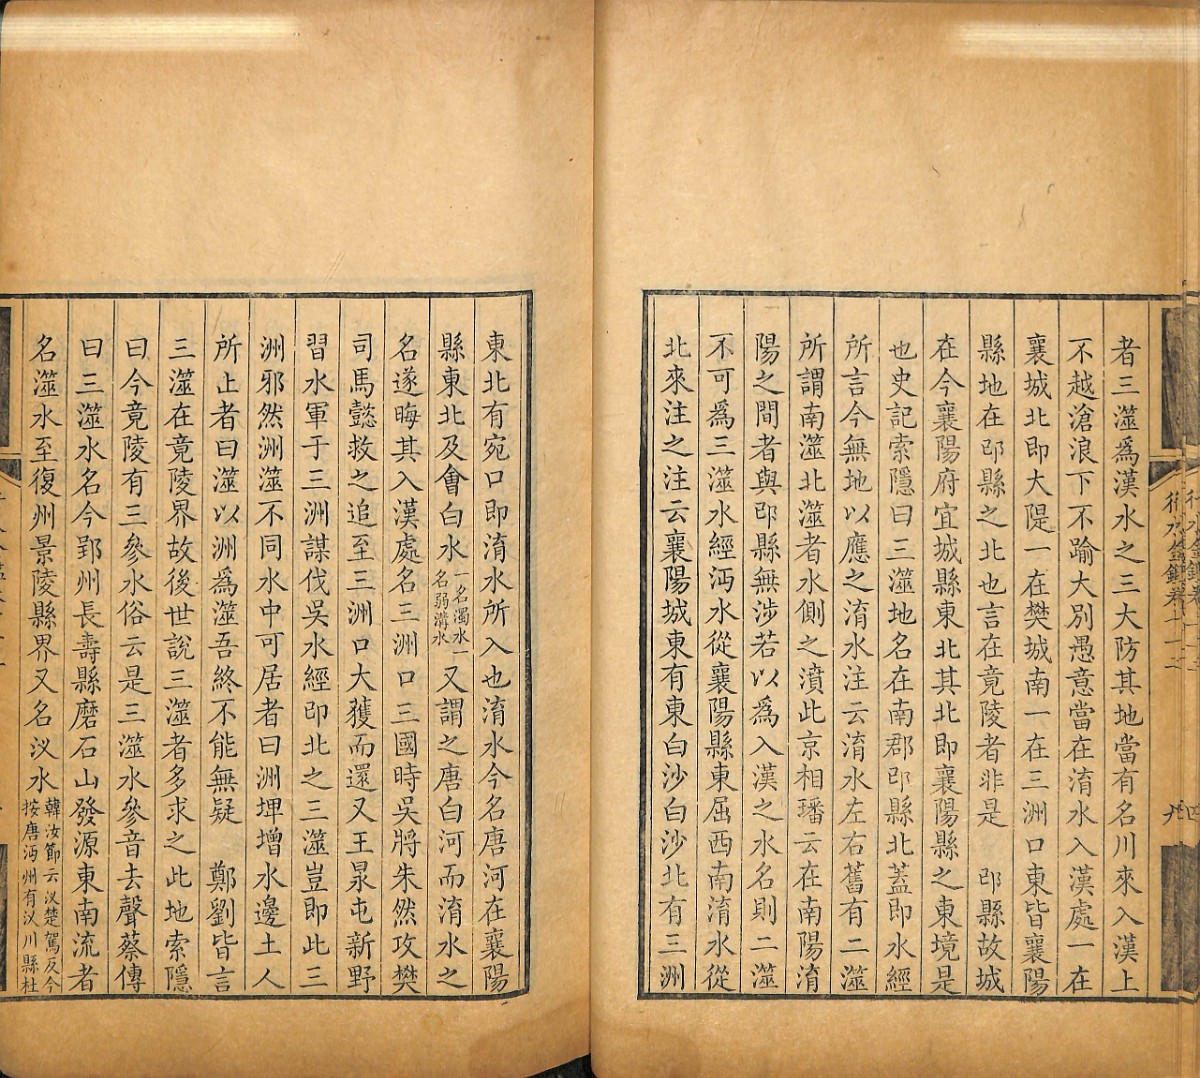 者三澨爲漢水之三大防其地當有名川來入漢上
不越滄浪下不踰大別愚意當在淯水入漢處一在
襄城北即大隄一在樊城南一在三洲口東皆襄陽
縣地在邔縣之北也言在竟陵者非是　邔縣故城
在今襄陽府宜城縣東北其北即襄陽縣之東境是
也史記索隱曰三澨地名在南郡邔縣北蓋即水經
所言今無地以應之淯水注云淯水左右舊有二澨
所謂南澨北澨者水側之濆此京相璠云在南陽淯
陽之間者與邔縣無涉若以爲入漢之水名則二澨
不可爲三澨水經沔水從襄陽縣東屈西南淯水從
北來注之注云襄陽城東有東白沙白沙北有三洲
東北有宛口即淯水所入也淯水今名唐河在襄陽
縣東北及會白水一名濁水一名弱溝水又謂之唐白河而淯水之
名遂晦其入漢處名三洲口三國時吳將朱然攻樊
司馬懿救之追至三洲口大獲而還又王㫤屯新野
習水軍于三洲謀伐吳水經邔北之三澨豈即此三
洲邪然洲澨不同水中可居者曰洲埤增水邊土人
所止者曰澨以洲爲澨吾終不能無疑　鄭劉皆言
三澨在竟陵界故後世說三澨者多求之此地索隱
曰今竟陵有三參水俗云是三澨水參音去聲蔡傳
曰三澨水名今郢州長壽縣磨石山發源東南流者
名澨水至復州景陵縣界又名汊水韓汝節云汊楚駕反今按唐沔州有汊川縣杜
行水金鑑卷